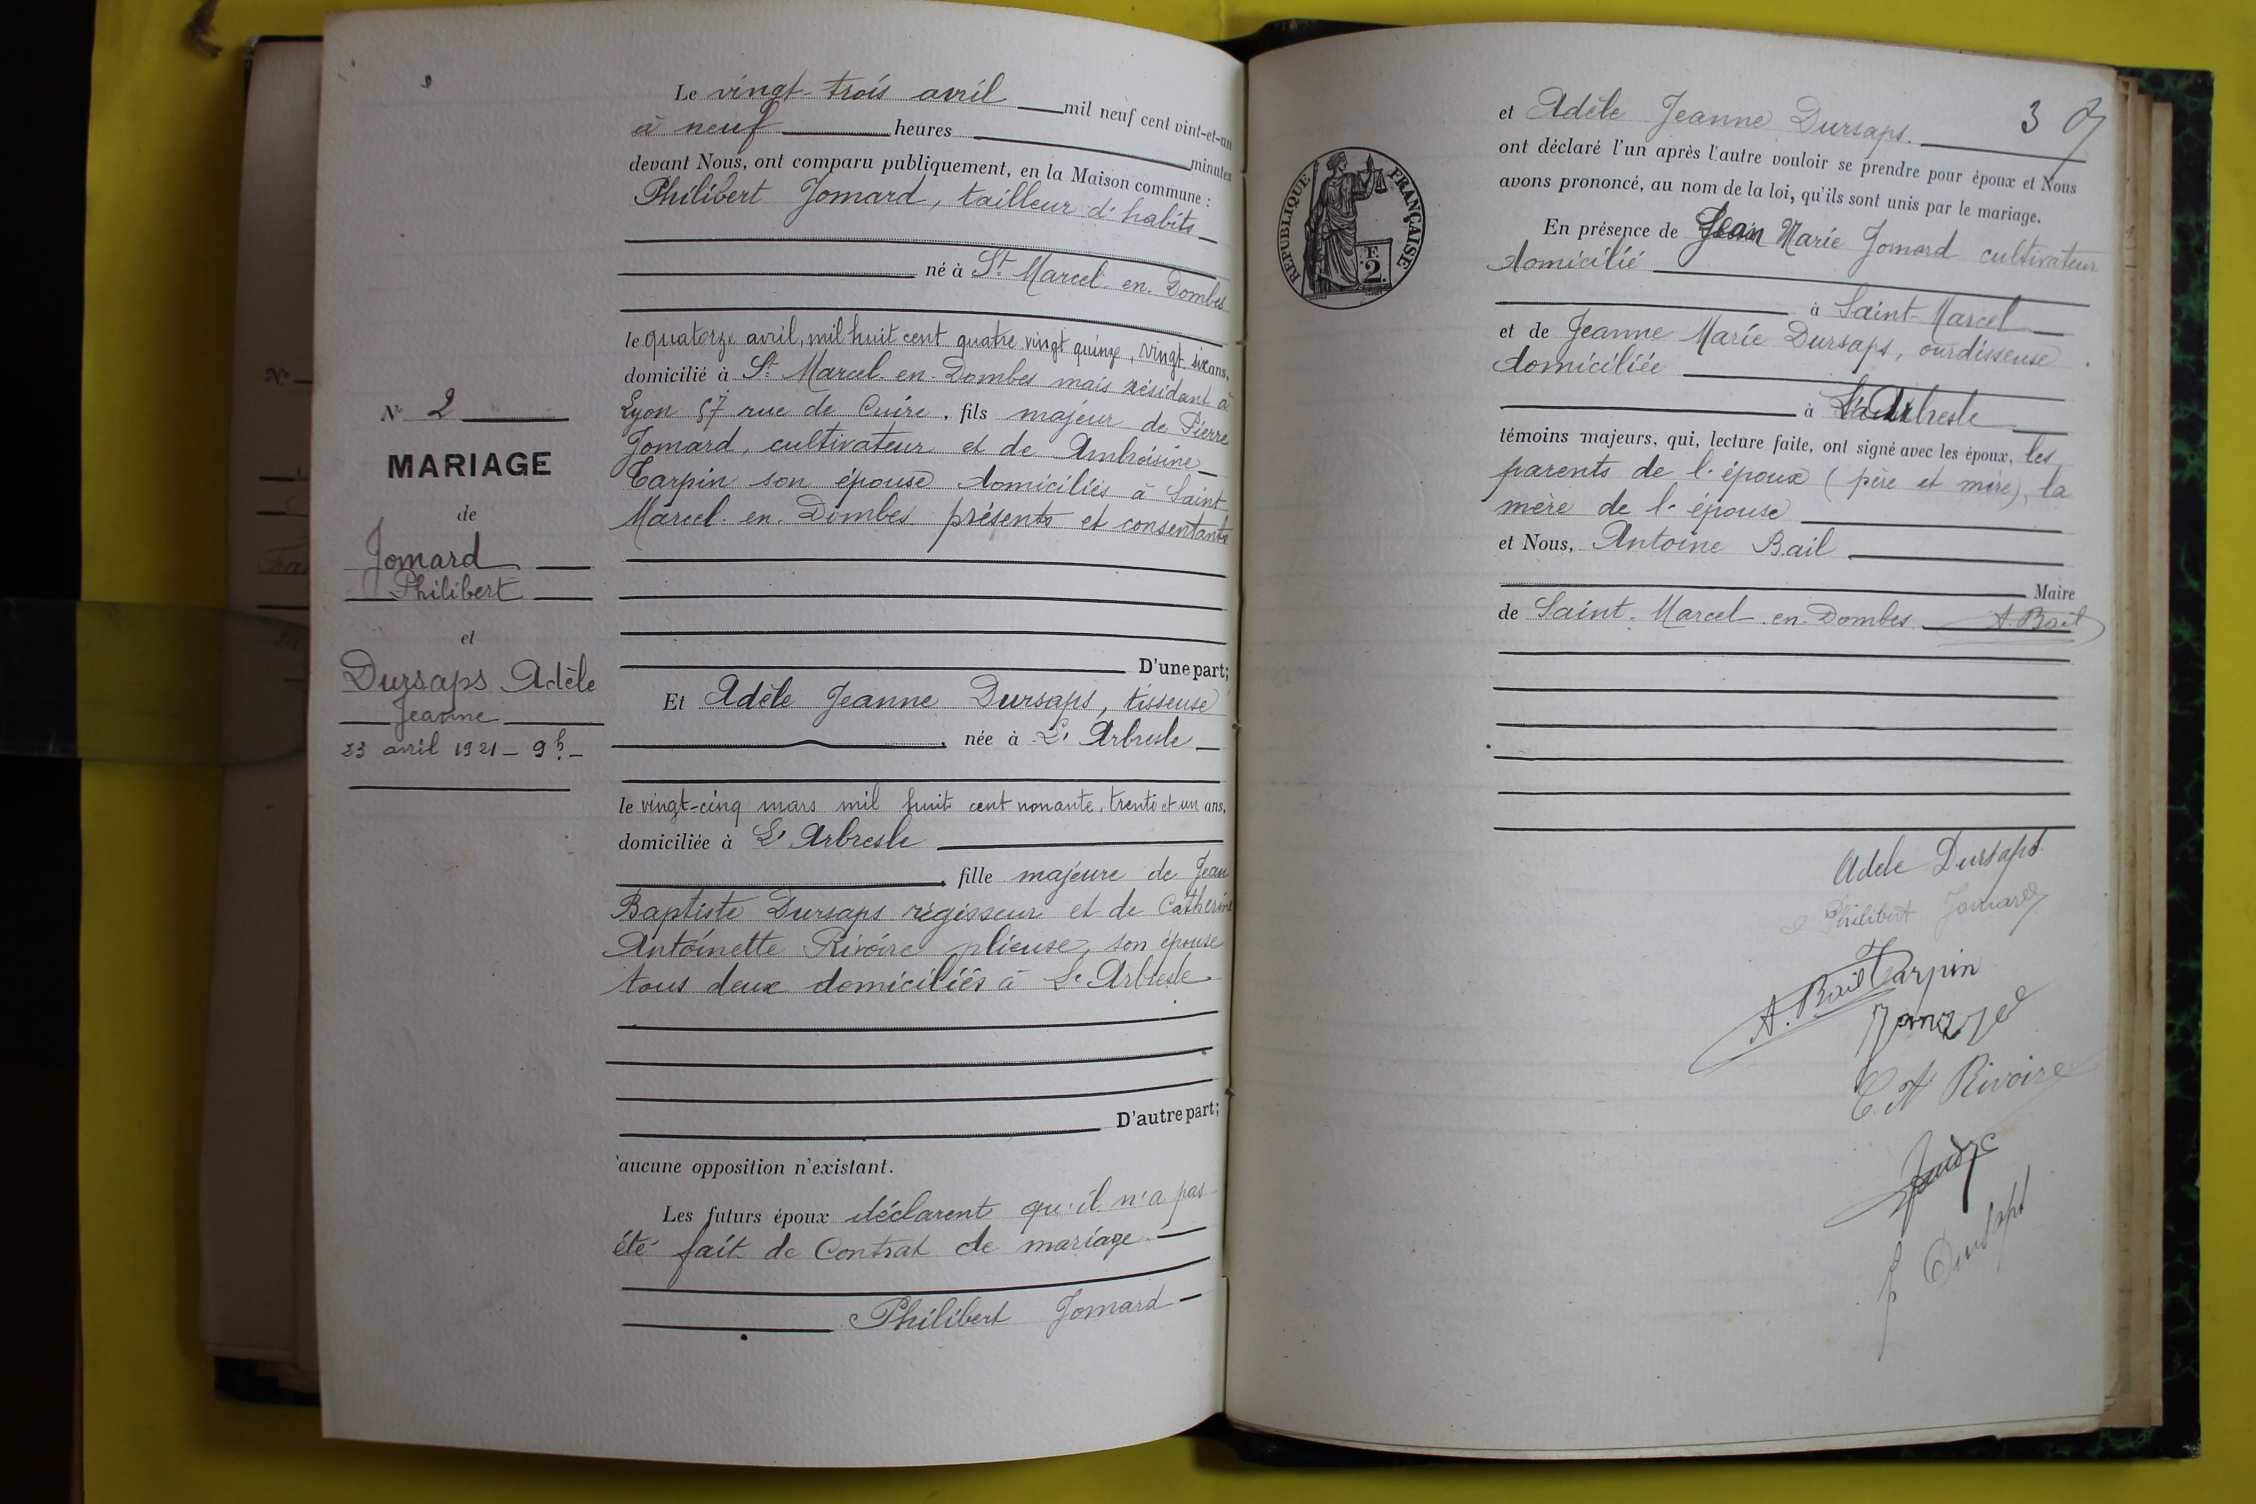 Le vingt-trois avril mil neuf cent vint-et-un
à neuf heures minutes
devant Nous, ont comparu publiquement, en la Maison commune :
Philibert Jomard, tailleur d'habits
né à St Marcel-en-Dombes
le quatorze avril, mil huit cent quatre vingt quinze, vingt six ans,
domicilié à St Marcel-en-Dombes mais résidant à
Lyon 57 rue de Cuire, fils majeur de Pierre
Jomard, cultivateur et de Ambroisine
Carpin son épouse domiciliés à Saint
Marcel-en-Dombes présents et consentants
D'une part;
Et Adèle Jeanne Dursaps, tisseuse
née à L'Arbresle
le vingt-cinq mars mil huit cent nonante, trente et un ans,
domiciliée à L'Arbresle
fille majeure de Jean
Baptiste Dursaps régisseur et de Catherine
Antoinette Rivoire plieuse, son épouse
tous deux domiciliés à L'Arbresle
D'autre part;
aucune opposition n'existant.
Les futurs époux déclarent qu'il n'a pas
été fait de Contrat de mariage.
Philibert Jomard
No 2
MARIAGE
de
Jomard
Philibert
et
Dursaps Adèle
Jeanne
23 avril 1921 - 9h -
No
3
RÉPUBLIQUE FRANÇAISE
F.
2.
et Adèle Jeanne Dursaps.
ont déclaré l'un après l'autre vouloir se prendre pour époux et Nous
avons prononcé, au nom de la loi, qu'ils sont unis par le mariage.
En présence de Jean Marie Jomard cultivateur
domicilié
à Saint-Marcel
et de Jeanne Marie Dursaps, ourdisseuse
domiciliée
à L'Arbresle
témoins majeurs, qui, lecture faite, ont signé avec les époux, les
parents de l'époux (père et mère), la
mère de l'épouse
et Nous, Antoine Bail
Maire
de Saint-Marcel-en-Dombes A. Bail
Adele Dursaps
Philibert Jomard
A. Bail Carpin
Jomard
C. A. Rivoire
J Dursaps